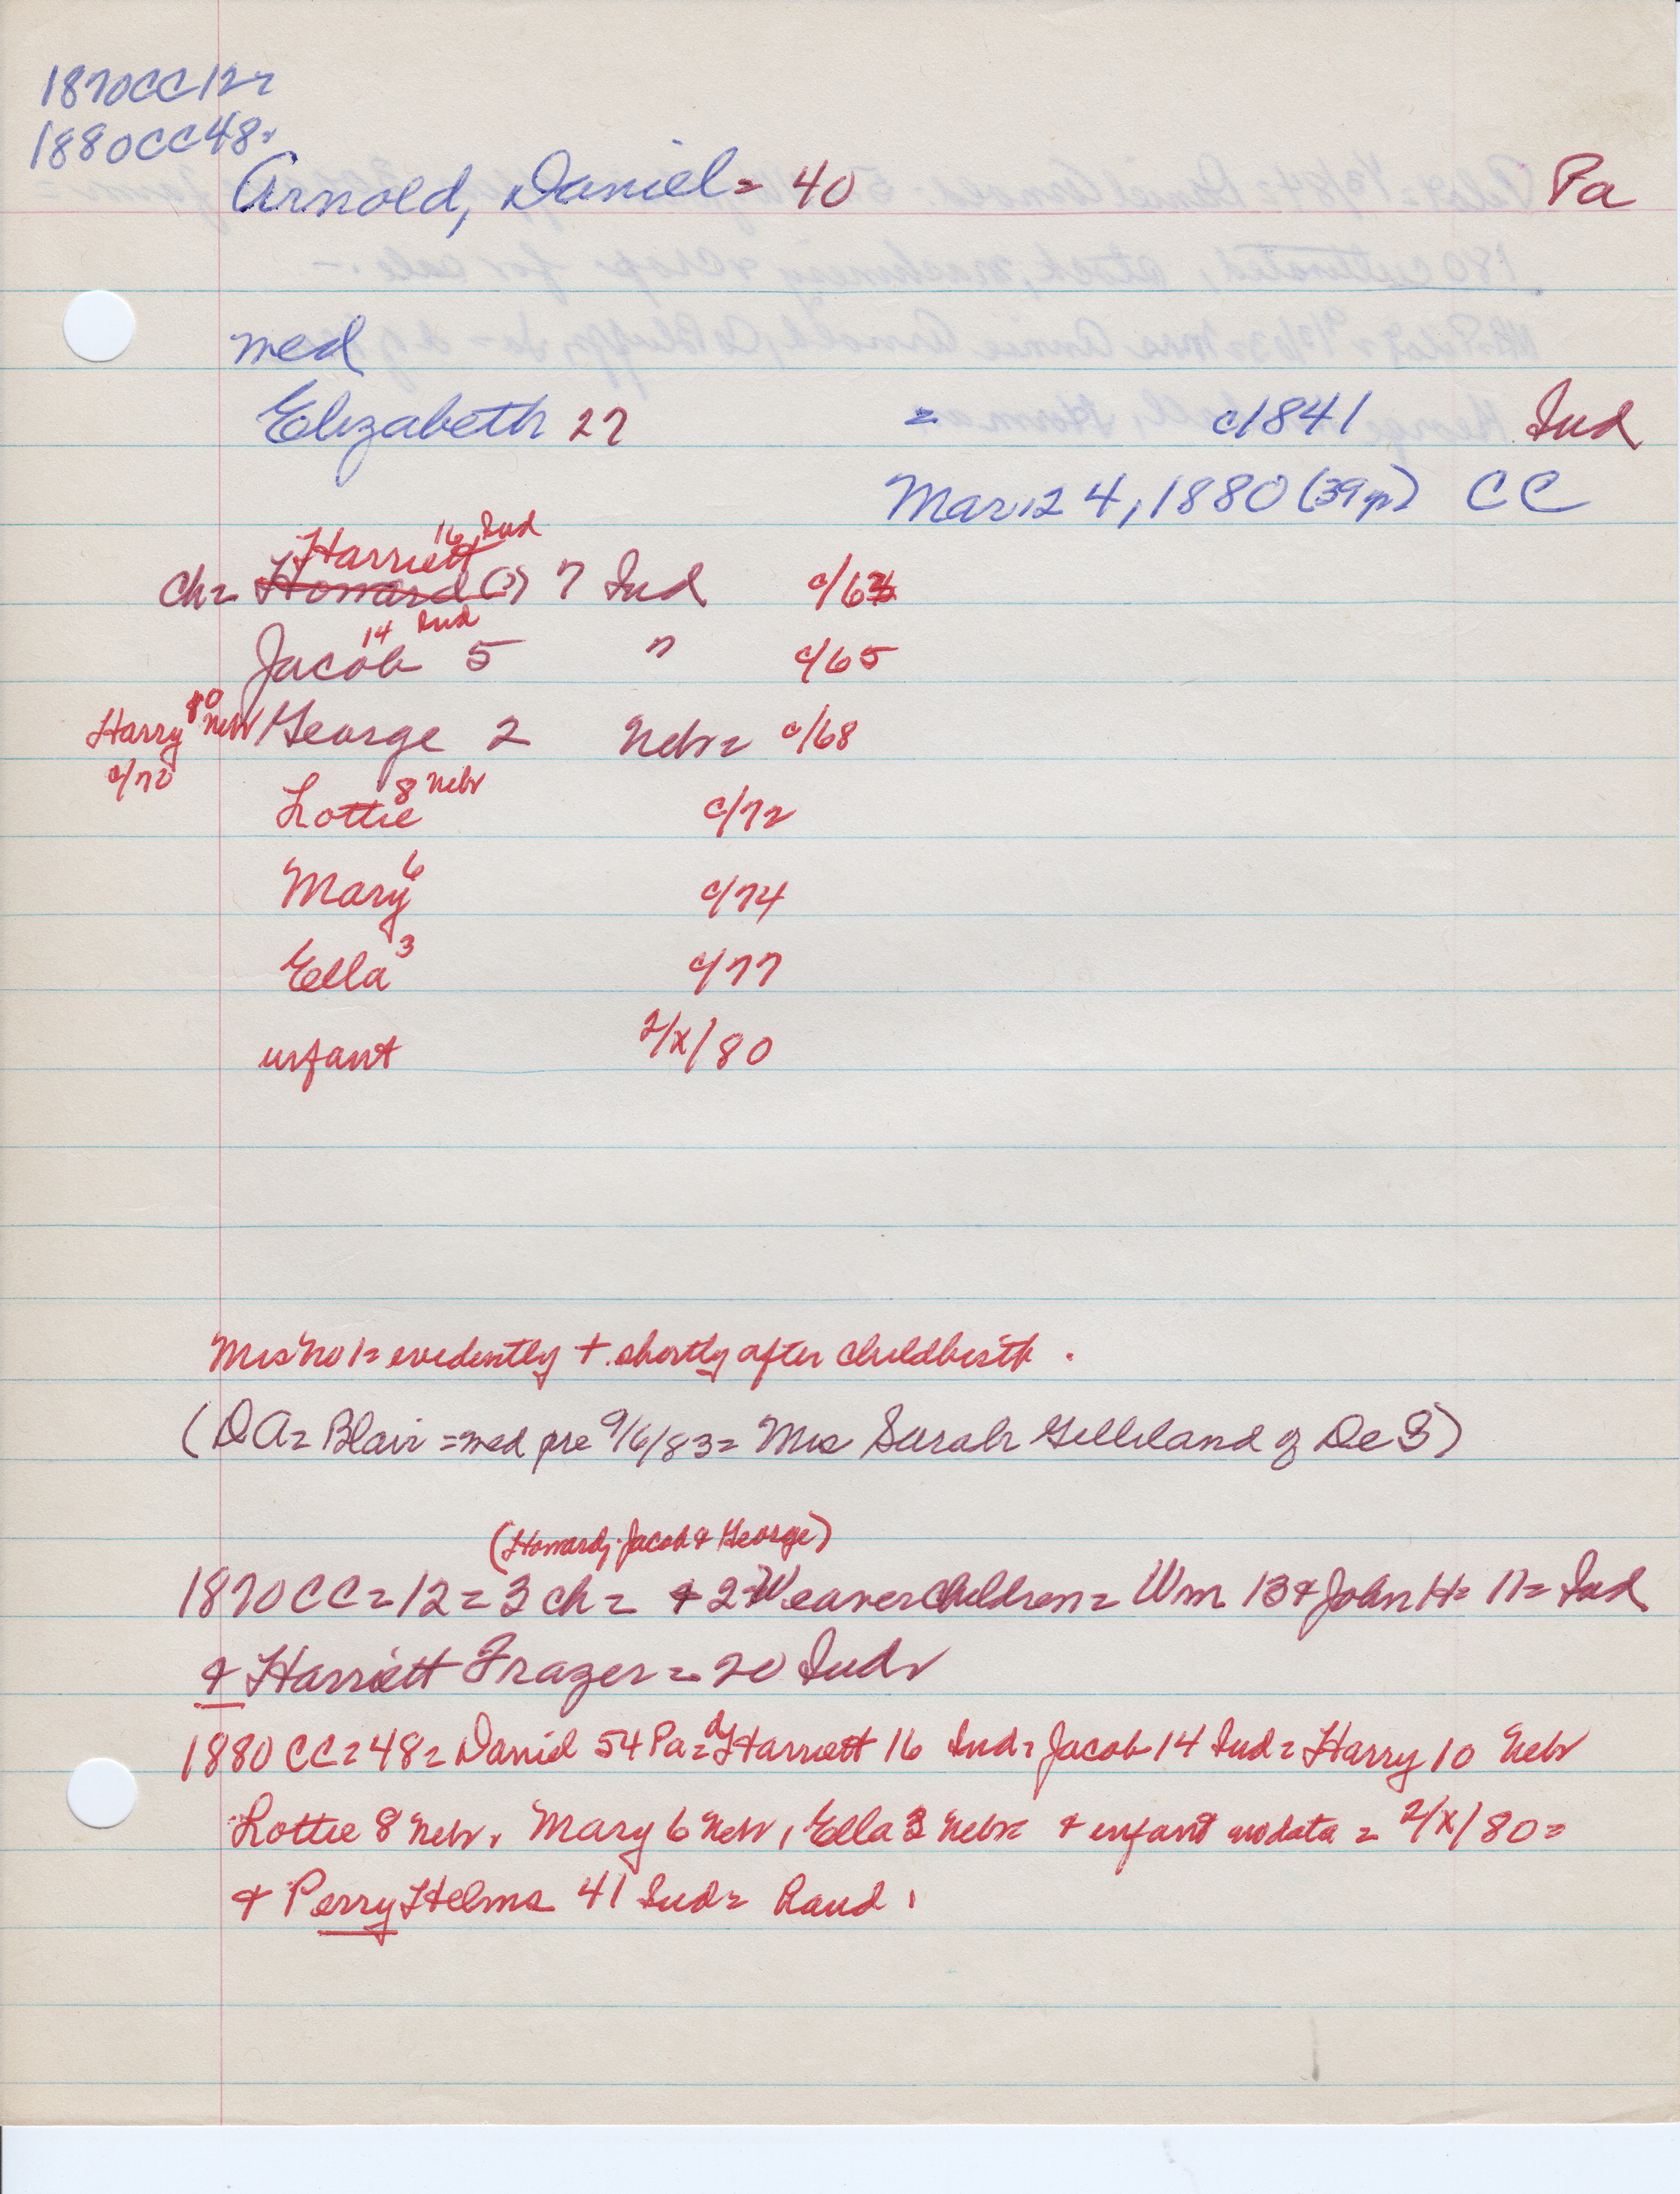 1870CC12=
1880CC48=
Arnold, Daniel = 40 Pa
med
Elizabeth 27 = c1841 Ind
Mar 24, 1880 (39 yr) CC
Harriett 16 Ind
ch= Howard (?) 7 Ind c/63
14 Ind
Jacob 5 " c/65
Harry Nebr George 2 Nebr= c/68
c/70
Lottie 8 Nebr c/72
Mary 6 c/74
Ella 3 c/77
infant 2/x/80
Mrs No 1= evidently + shortly after childbirth.
(DA= Blair = med pre 9/6/83= Mrs Sarah Gilliland of De S)
(Howard, Jacob & George)
1870CC=12=3 ch= & 2 Weaver Children= Wm 13 & John H= 11= Ind
& Harriett Frazer = 20 Ind
1880 CC=48= Daniel 54 Pa= Harriett 16 Ind= Jacob 14 Ind= Harry 10 Nebr
Lottie 8 Nebr, Mary 6 Nebr, Ella 3 Nebr & infant no data = 2/x/80=
& Perry Helms 41 Ind=